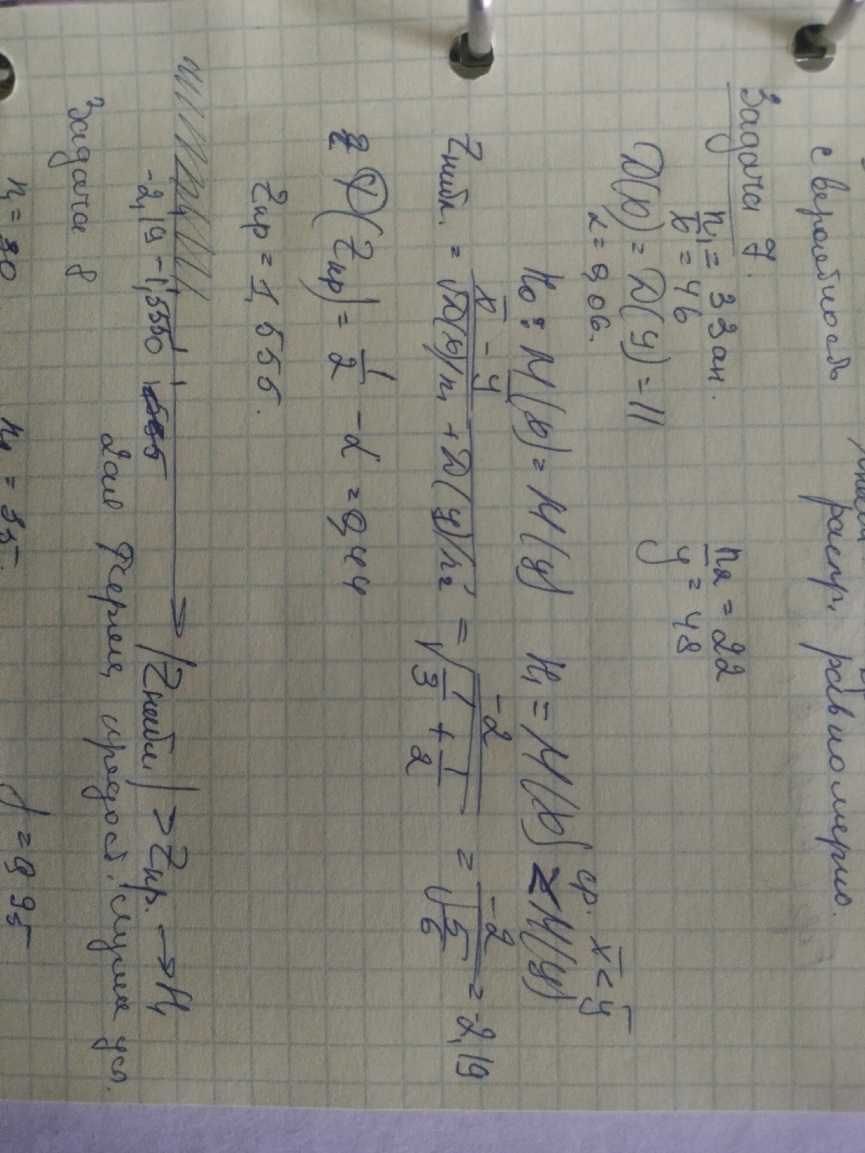 с вероятность распр. равномерно.
Задача 7.
n₁ = 33 ан. n₂ = 22
x̅ = 46 y̅ = 48
D(x) = D(y) = 11
α = 0,06. ср. x̅ < y̅
H₀: M(x) = M(y) H₁ = M(x) < M(y)
Zнабл. = (x̅ - y̅)/√(D(x)/n₁ + D(y)/n₂) = -2/√(1/3 + 1/2) = -2/√(5/6) = -2,19
Φ(Zкр) = 1/2 - α = 0,44
Zкр = 1,555.
-2,19 -1,555 0 |Zнабл| > Zкр. → H₁
2ая ферма, предост. лучше усл.
Задача 8
n₁ = 30 n₂ = 35. γ = 0,95